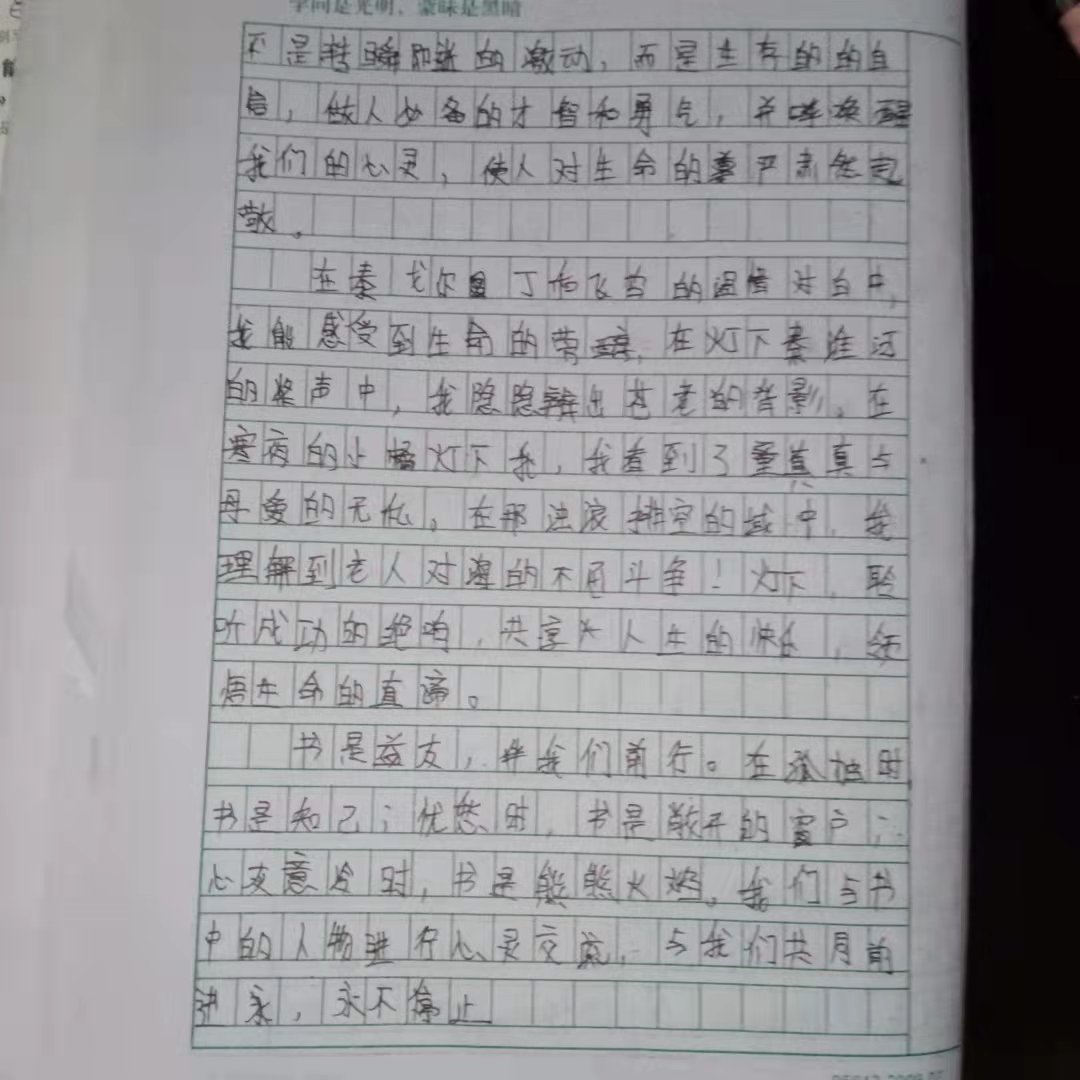 学问是光明，蒙昧是黑暗
不是转瞬即逝的激动，而是生存的的自
信，做人必备的才智和勇气，并唤醒
我们的心灵，使人对生命的尊严肃然起
敬。
在泰戈尔园丁和飞鸟的温情对白中，
我能感受到生命的劳碌，在灯下秦淮河
的桨声中，我隐隐辨出苍老的背影。在
寒夜的小橘灯下我，我看到了童真真与
母爱的无私。在那浊浪排空的域中，我
理解到老人对海的不屈斗争！灯下，聆
听成功的绝响，共享人生的快乐，领
悟生命的真谛。
书是益友，伴我们前行。在孤独时
书是知己；忧愁时，书是敞开的窗户；
心灰意冷时，书是熊熊火焰。我们与书
中的人物进行心灵交流，与我们共同前
进永，永不停止